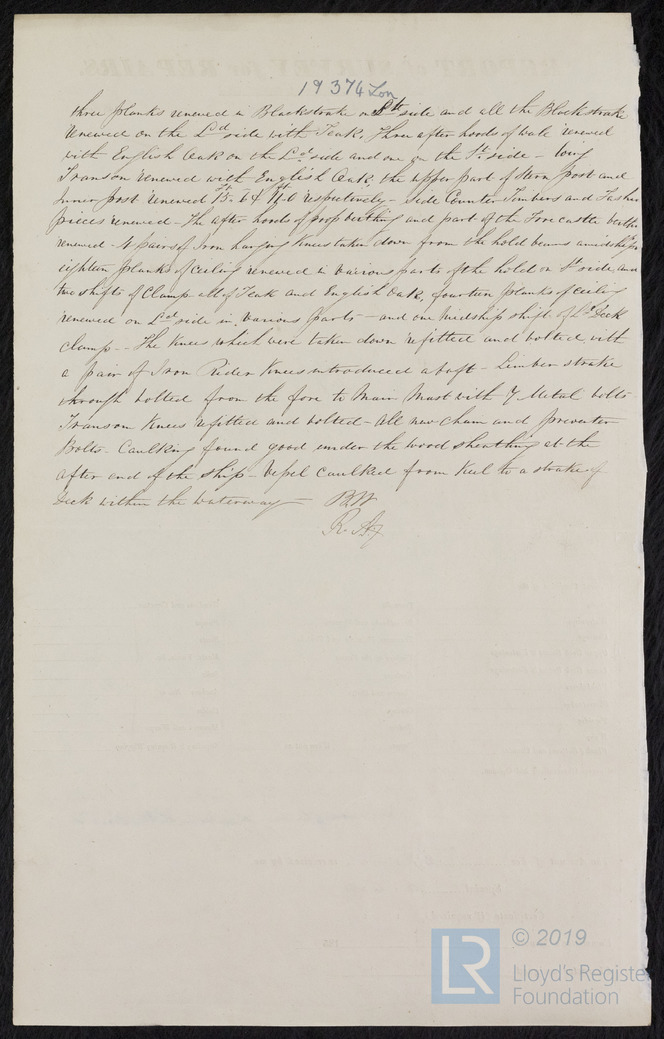 19374 Lon
three planks renewed in Blackstrake on St side and all the Blackstrake
renewed on the Ld side with Teak, Three after hoods of wale renewed
with English Oak on the Ld side and one on the St side - Wing
Transom renewed with English Oak, the upper part of Stern post and
Inner post renewed respectively - Side Counter Timbers and Fashion
pieces renewed - The after hoods of poop birthing and part of the Forecastle birthing
renewed - pairs of Iron hanging Knees taken down from the hold beams amidships
eighteen planks of ceiling renewed in various parts of the hold on St side, and
two shifts of Clamp all of Teak and English Oak, fourteen planks of ceiling
renewed on Ld side in various parts - and one Midship shift of Ld Deck
Clamp - - The Knees which were taken down refitted and bolted, with
a pair of Iron Rider Knees introduced abaft - Limber strake
through bolted from the fore to Main Mast with Y Metal bolts
Transom Knees refitted and bolted - All new Chain and preventer
Bolts - Caulking found good under the wood sheathing at the
after end of the ship - Vessel caulked from Keel to a strake of
Deck within the waterway - B.W
© 2019
LR
Lloyd's Register
Foundation